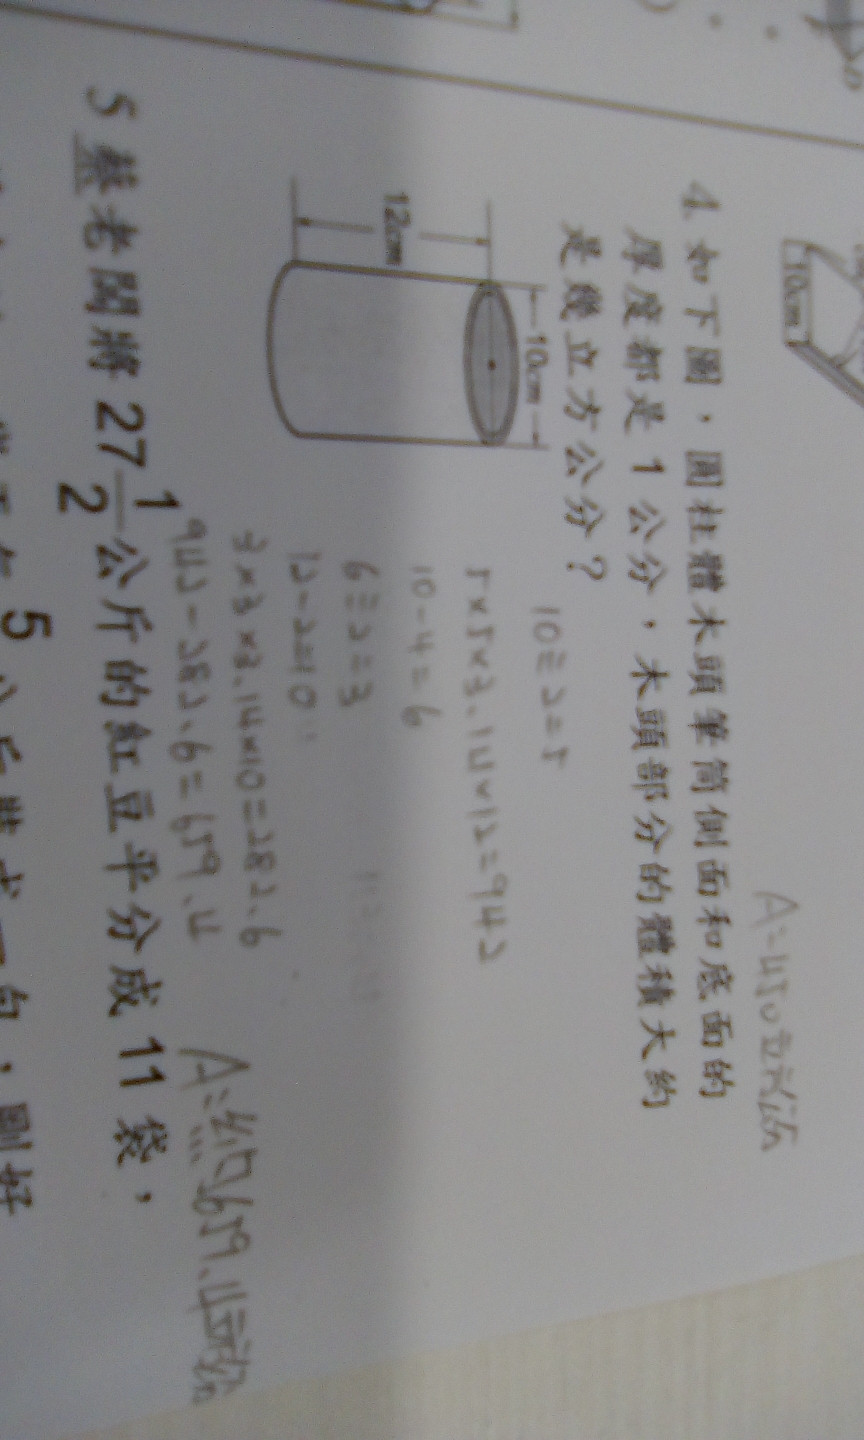 10cm
A：450立方公分
4 如下圖，圓柱體木頭筆筒側面和底面的
厚度都是1公分，木頭部分的體積大約
是幾立方公分？
10cm
12cm
10÷2=5
5×5×3.14×12=942
10-4=6
6÷2=3
12-2=10
3×3×3.14×10=282.6
942-282.6=659.4
A：約659.4立方公分
5 蔡老闆將27 1/2公斤的紅豆平分成11袋，